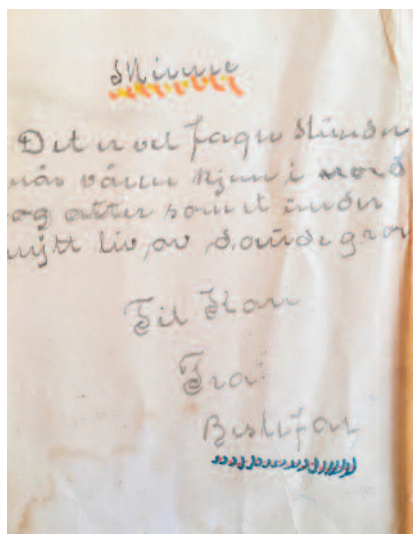 Minne
Det er vel fager stunden
når våren kjem i nord
og atter som et under
nytt liv av daude gror
Til Kari
Fra
Bestefar